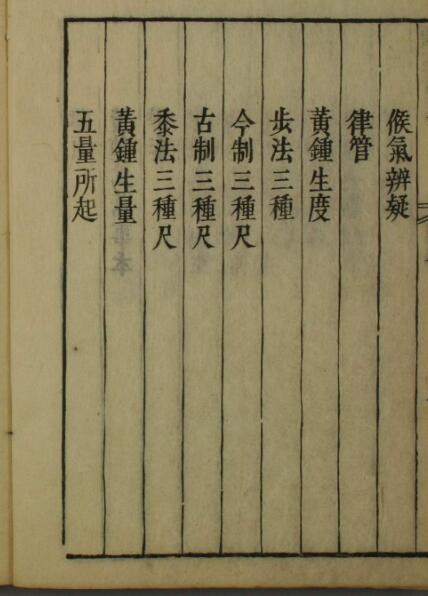 候氣辨疑
律管
黃鍾生度
步法三種
今制三種尺
古制三種尺
黍法三種尺
黃鍾生量
五量所起